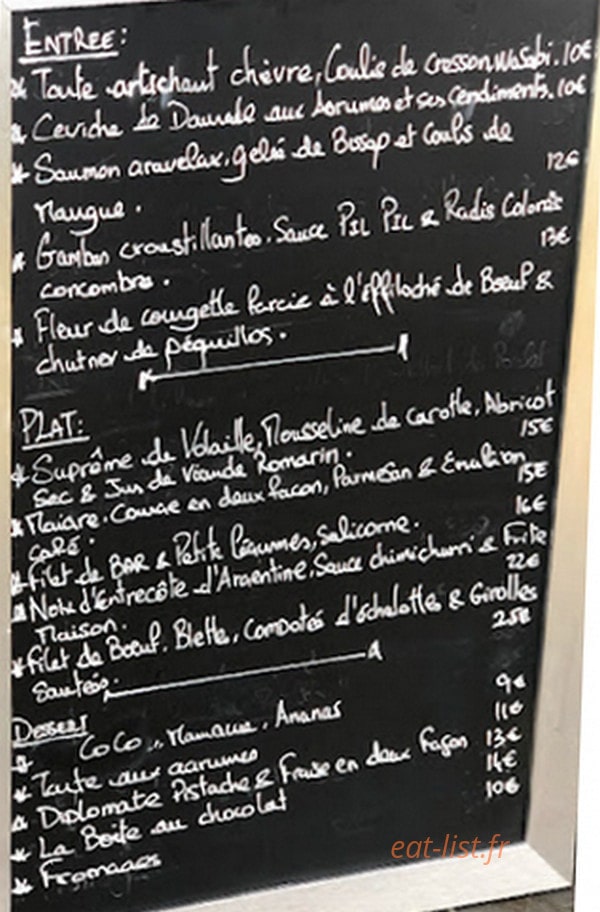 ENTREE:
* Tarte artichaut chèvre, Coulis de cresson Wasabi. 10€
* Ceviche de Daurade aux Agrumes et ses condiments. 10€
* Saumon gravelax, gelée de Bissap et Coulis de
Mangue. 12€
* Gambas croustillantes, Sauce PIL PIL & Radis Colorés
concombre. 13€
* Fleur de courgette farcie à l'effiloché de Boeuf &
chutney de péquillos.
PLAT:
* Suprême de Volaille, Mousseline de carotte, Abricot
Sec & Jus de Viande Romarin. 15€
* Maigre, Courge en deux facon, Parmesan & Emulsion
café. 15€
* Filet de BAR & Petits légumes, Salicorne. 16€
* Noix d'Entrecôte d'Argentine, Sauce chimichurri & Frite
Maison. 22€
* Filet de Boeuf, Blette, Compotée d'échalottes & Girolles
Sautées. 25€
DESSERT
* COCO, Mangue, Ananas 9€
* Tarte aux agrumes 11€
* Diplomate Pistache & Fraise en deux façon 13€
* La Boite au chocolat 14€
* Fromages 10€
eat-list.fr